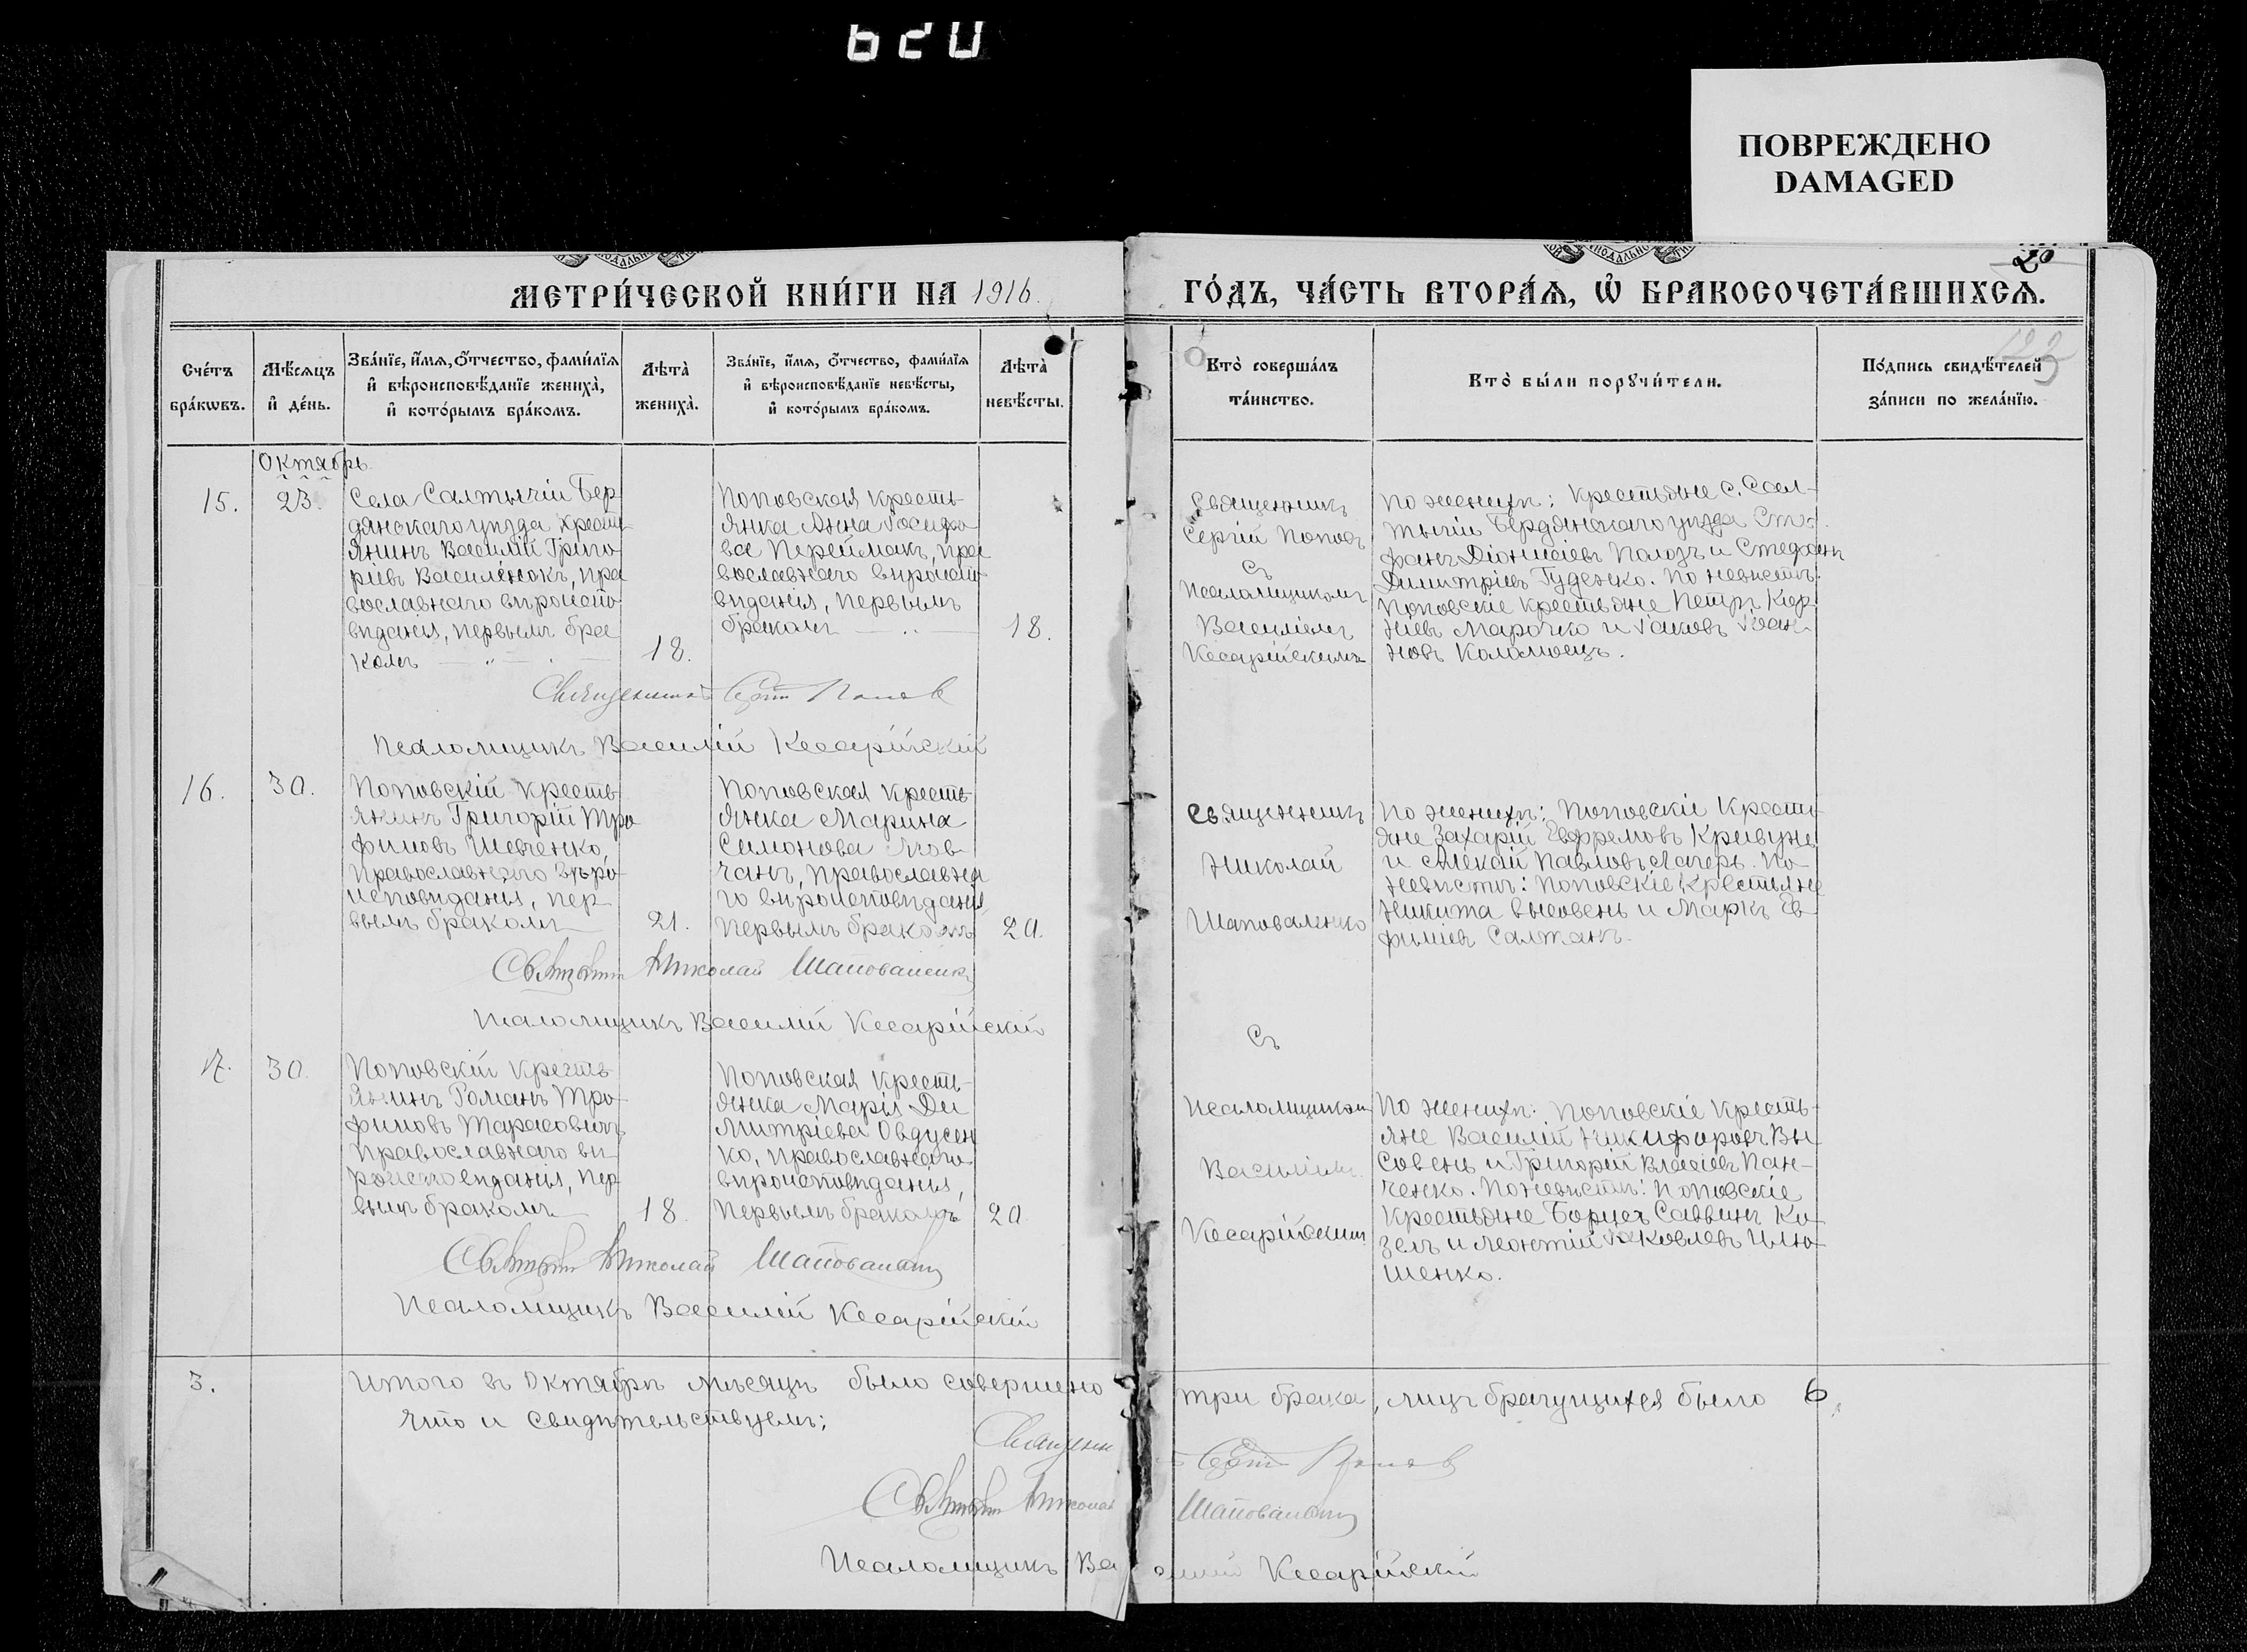 620
ПОВРЕЖДЕНО
DAMAGED
МЕТРИ́ЧЕСКОЙ КНИ́ГИ НА 1916.
ГО́ДЪ, ЧА́СТЬ ВТОРА́Ѧ, Ѡ҆ БРАКОСОЧЕТА́ВШИХСѦ.
20
Сче́тъ
бра́кѡвъ.
Мѣ́сяцъ
и҆ де́нь.
Зва́нїе, и҆́мѧ, ѻ҆́тчество, фами́лїѧ
и҆ вѣроисповѣ́данїе жениха̀,
и҆ кото́рымъ бра́комъ.
Лѣта̀
жениха̀.
Зва́нїе, и҆́мѧ, ѻ҆́тчество, фами́лїѧ
и҆ вѣроисповѣ́данїе невѣ́сты,
и҆ кото́рымъ бра́комъ.
Лѣта̀
невѣ́сты.
Кто̀ соверша́лъ
та́инство.
Кто̀ бы́ли порꙋчи́тели.
По́дпись свидѣ́телей
за́писи по жела́нїю.
Октябрь
15.
23.
Села Салтычіи Бер
дянскаго уѣзда крест
янинъ Василій Григо
ріевъ Василенокъ, пра
вославнаго вѣроиспо
вѣданія, первымъ бра
комъ
18.
Поповская кресть
янка Анна Іосифо
ва Переймакъ, пра
вославнаго вѣроиспо
вѣданія, первымъ
бракомъ
18.
Священникъ
Сергій Поповъ
съ
Псаломщикомъ
Василіемъ
Кесарійскимъ
По женихѣ: крестьяне с. Сал-
тычіи Бердянскаго уѣзда Сте
фанъ Діонисіевъ Палузъ и Стефанъ
Димитріевъ Гуденко. По невѣстѣ:
Поповскіе крестьяне Петръ Кор
ніевъ Марочко и Іаковъ Іоан
новъ Коломоецъ.
Священникъ Сергій Попов
Псаломщикъ Василій Кесарійскій
16.
30.
Поповскій кресть
янинъ Григорій Тро
фимовъ Шевченко,
православнаго вѣро
исповѣданія, пер
вымъ бракомъ
21.
Поповская кресть
янка Марина
Симонова Мов
чанъ, православна
го вѣроисповѣданія,
первымъ бракомъ
20.
Священникъ
Николай
Шаповаленко
По женихѣ: Поповскіе Кресть
яне Захарій Евфремовъ Кривунь
и Алексій Павловъ Лагерь. По
невѣстѣ: Поповскіе крестьяне
Никита Высовень и Маркъ Ев
фиміевъ Салтанъ.
Священник Николай Шаповаленко
Псаломщикъ Василій Кесарійскій
съ
17.
30.
Поповскій кресть
янинъ Романъ Тро
фимовъ Тарасовичъ
православнаго вѣ
роисповѣданія, пер
вымъ бракомъ
18.
Поповская кресть
янка Марія Ди
митріева Овдусен
ко, православнаго
вѣроисповѣданія,
первымъ бракомъ
20.
Псаломщикомъ
Василіемъ
Кесарійскимъ
По женихѣ: Поповскіе кресть
яне Василій Никифоровъ Вы
совень и Григорій Власіевъ Пан-
ченко. По невѣстѣ: Поповскіе
крестьяне Борисъ Саввинъ Ко
зелъ и Леонтій Іаковлевъ Илю
шенко.
Священник Николай Шаповаленко
Псаломщикъ Василій Кесарійскій
3.
Итого въ Октябрѣ мѣсяцѣ было совершено три брака, лицъ брачущихся было 6.
Что и свидѣтельствуемъ:
Священникъ Сергій Попов
Священник Николай Шаповаленко
Псаломщикъ Василій Кесарійскій